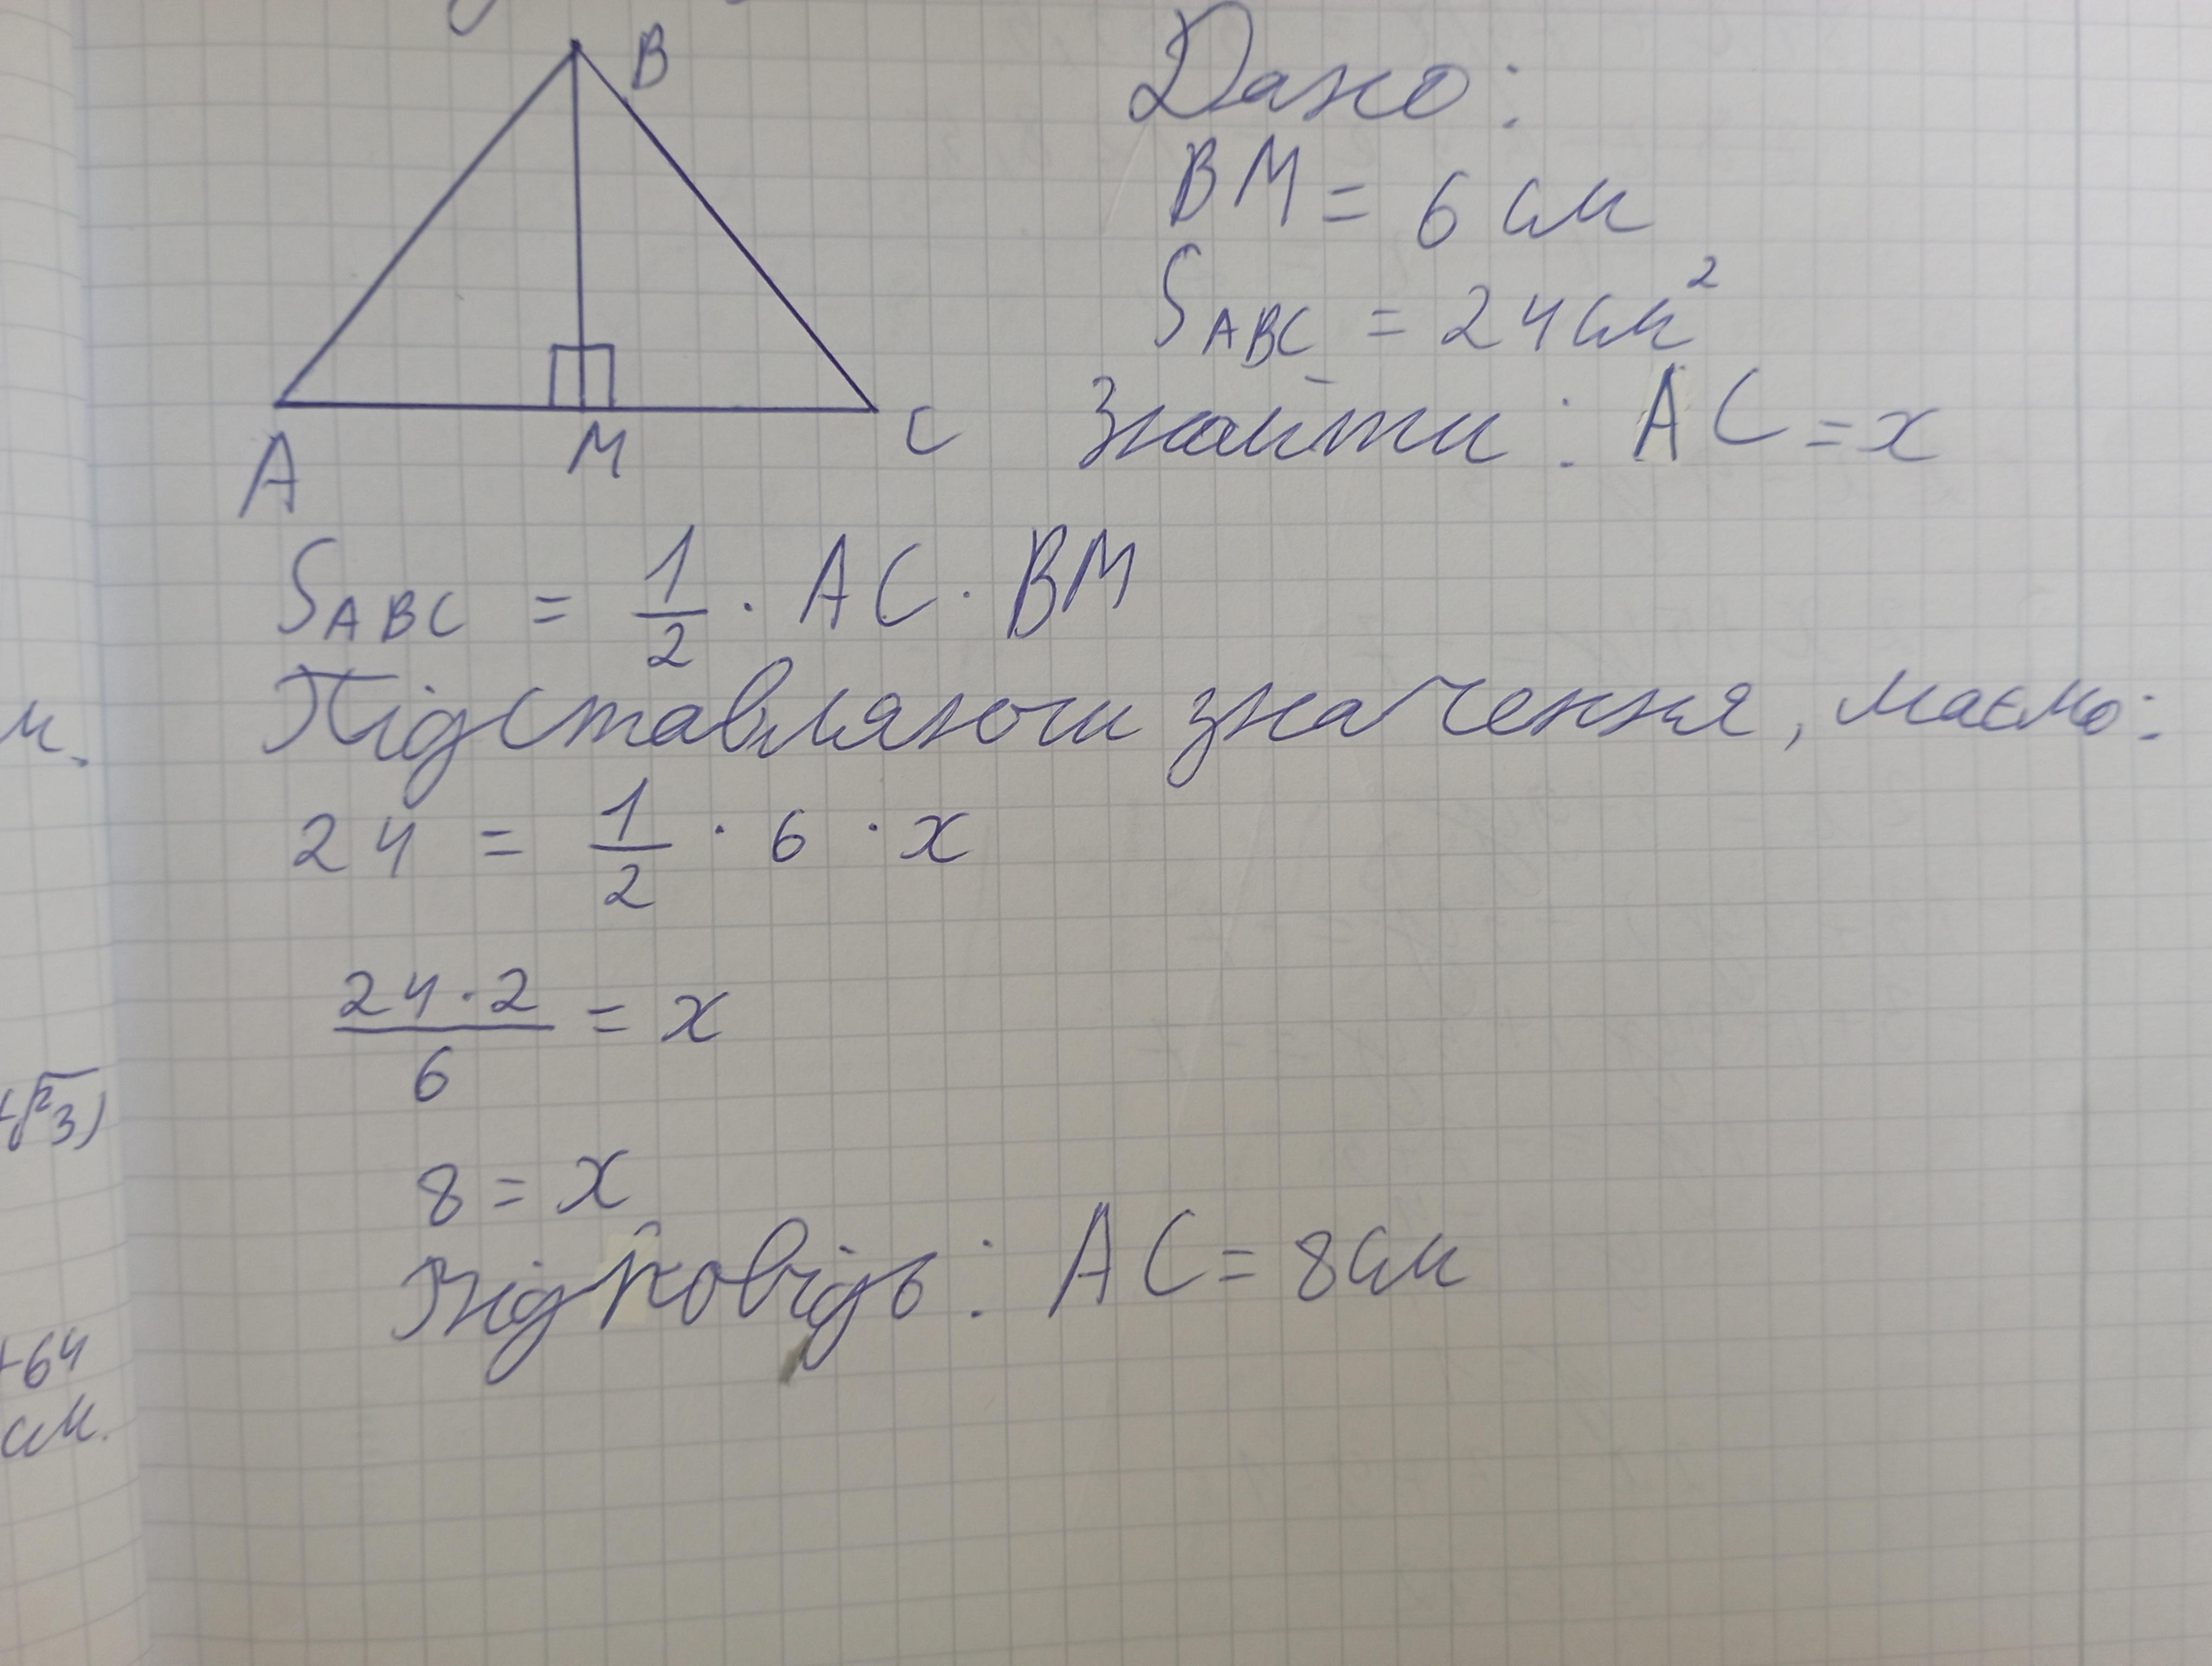 B
A
M
C
Дано:
BM = 6 см
S_ABC = 24 см²
Знайти: AC = x
S_ABC = 1/2 · AC · BM
Підставляючи значення, маємо:
24 = 1/2 · 6 · x
24 · 2 / 6 = x
8 = x
Відповідь: AC = 8 см
м.
+64
см.